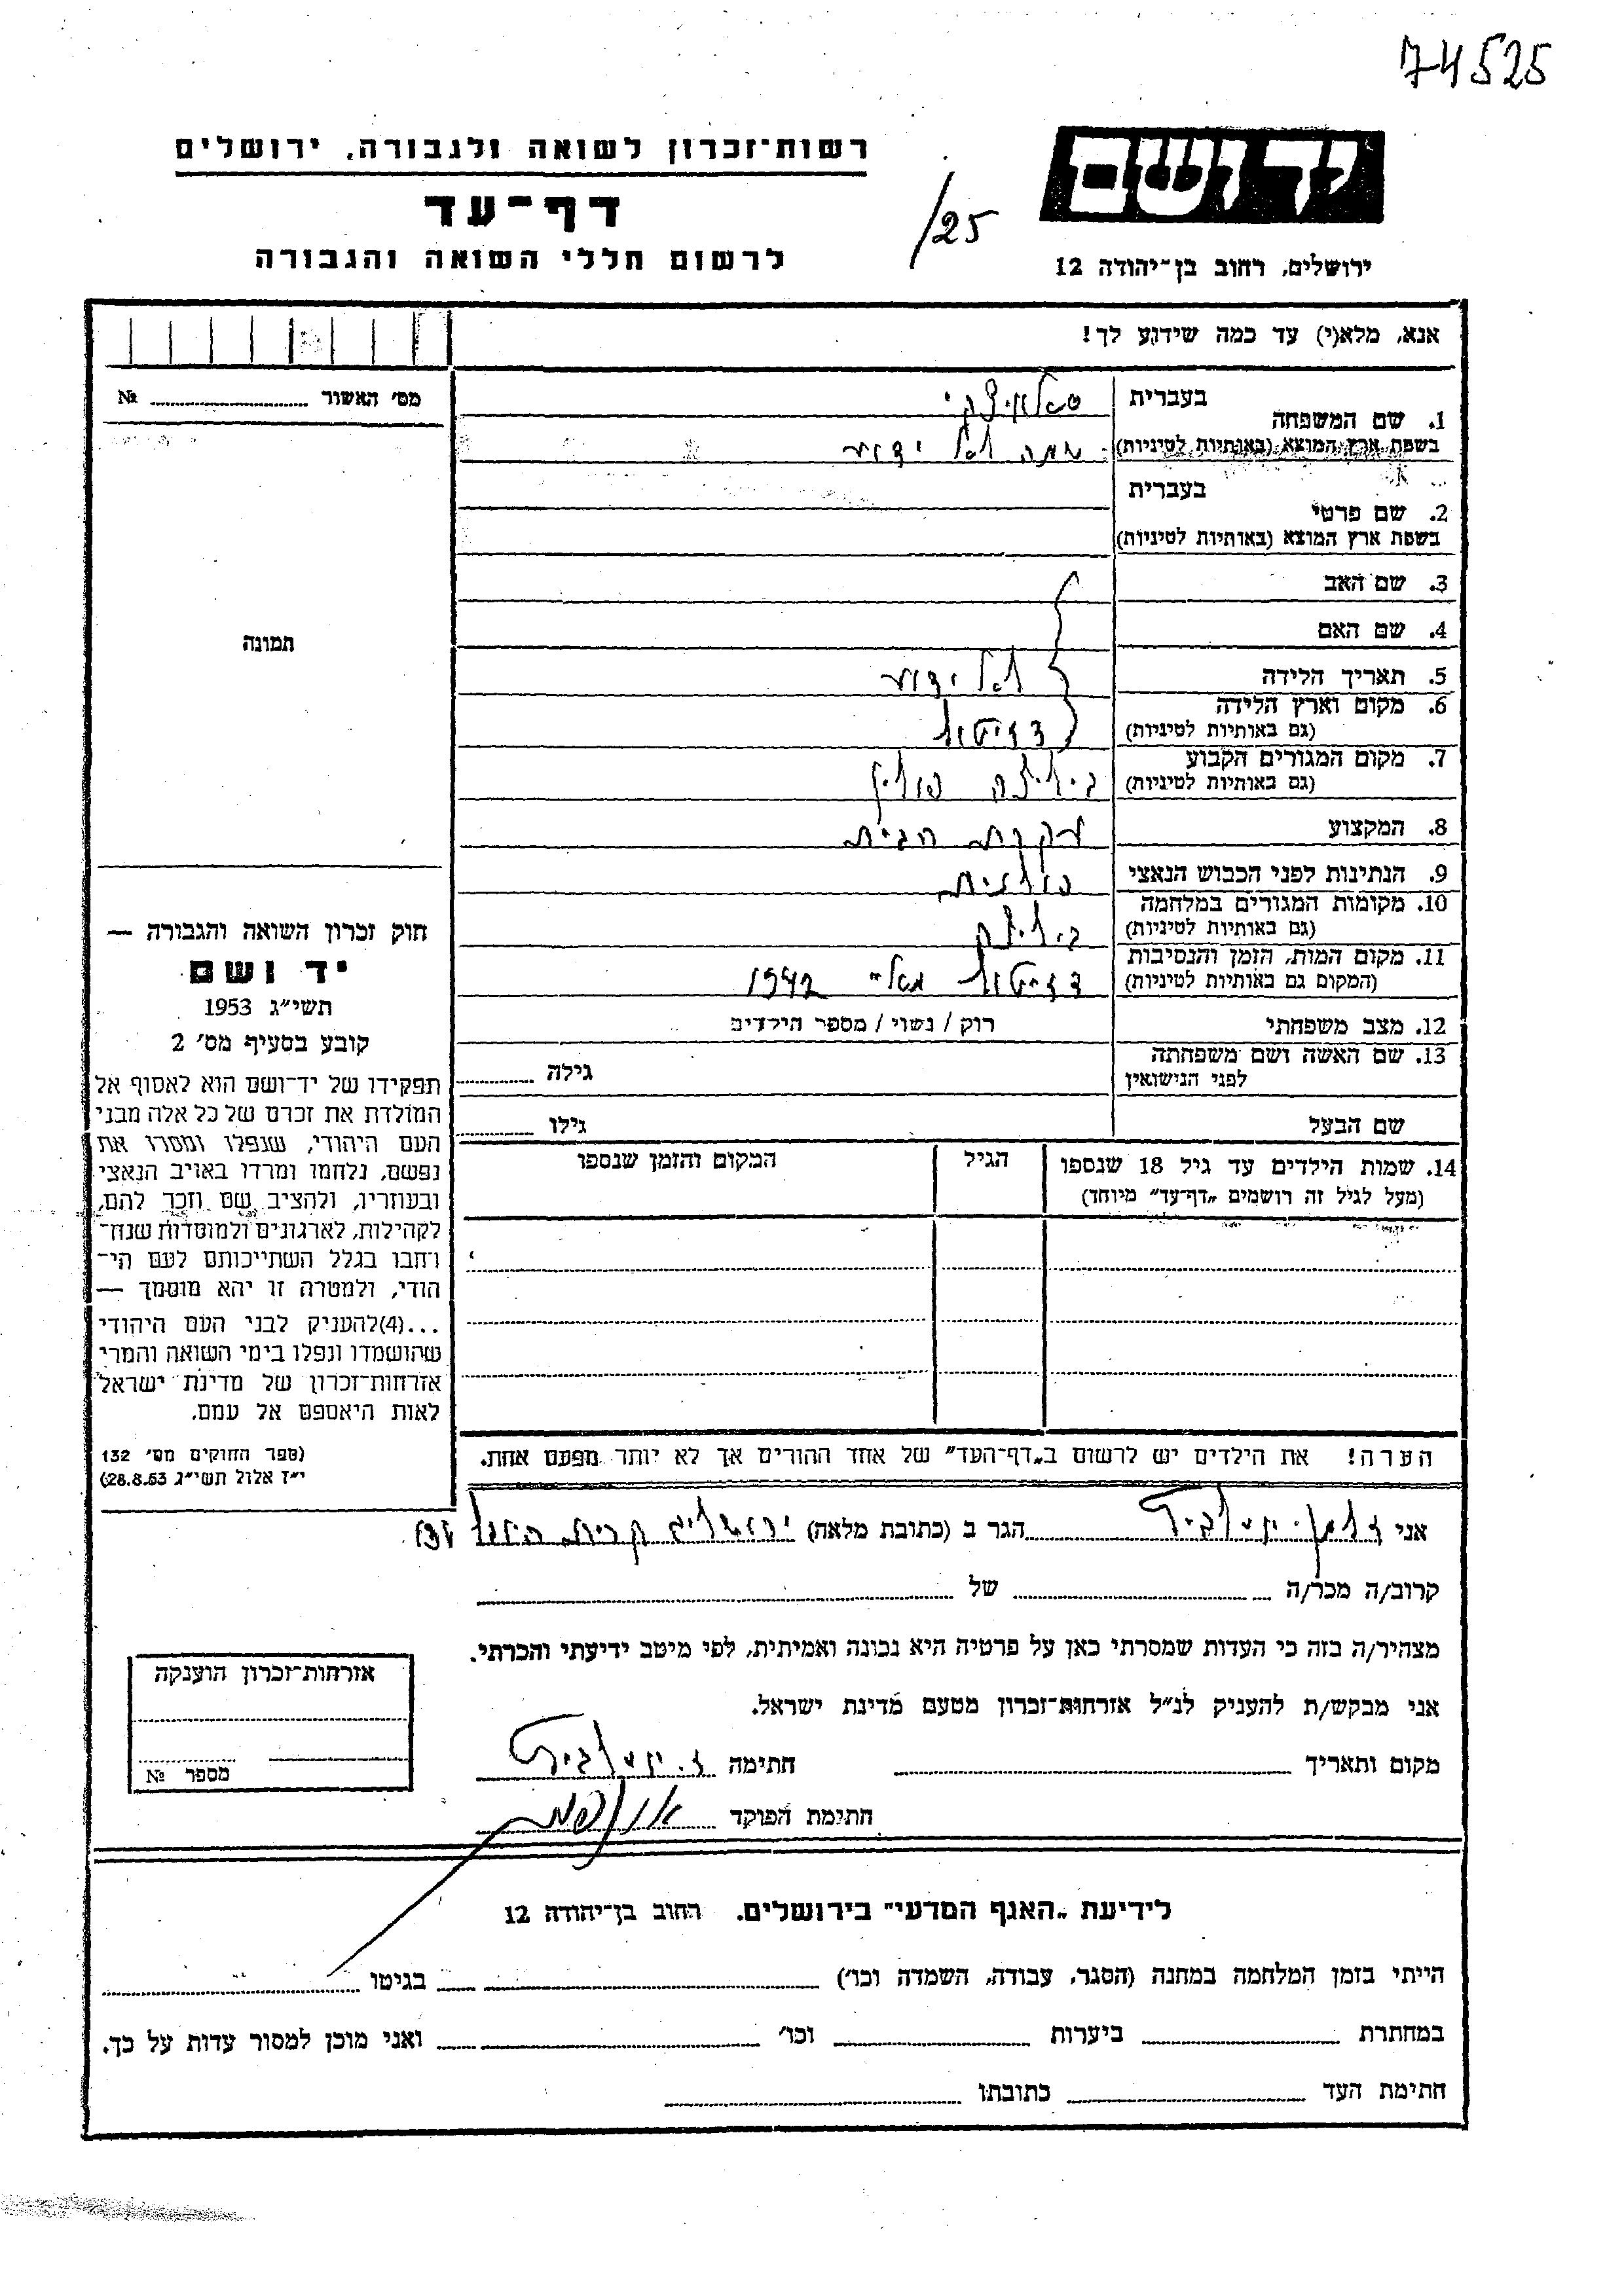 74525
יד ושם
רשות־זכרון לשואה ולגבורה, ירושלים
דף־עד
/25
לרשום חללי השואה והגבורה
ירושלים, רחוב בן־יהודה 12
אנא, מלא(י) עד כמה שידוע לך!
מס׳ האשור № 
1. שם המשפחה
בעברית
בשפת ארץ המוצא (באותיות לטיניות)
לא ידוע
2. שם פרטי
בעברית
בשפת ארץ המוצא (באותיות לטיניות)
3. שם האב
4. שם האם
5. תאריך הלידה לא ידוע
6. מקום וארץ הלידה
(גם באותיות לטיניות)
7. מקום המגורים הקבוע פולין
(גם באותיות לטיניות)
8. המקצוע עקרת הבית
9. הנתינות לפני הכבוש הנאצי פולנית
10. מקומות המגורים במלחמה
(גם באותיות לטיניות)
11. מקום המות, הזמן והנסיבות 1942
(המקום גם באותיות לטיניות)
12. מצב משפחתי רוק / נשוי / מספר הילדים
13. שם האשה ושם משפחתה
לפני הנישואין
גילה
שם הבעל גילו
14. שמות הילדים עד גיל 18 שנספו
(מעל לגיל זה רושמים „דף־עד״ מיוחד)
הגיל
המקום והזמן שנספו
הערה! את הילדים יש לרשום ב„דף־העד״ של אחד ההורים אך לא יותר מפעם אחת.
תמונה
חוק זכרון השואה והגבורה —
יד ושם
תשי״ג 1953
קובע בסעיף מס׳ 2
תפקידו של יד־ושם הוא לאסוף אל
המולדת את זכרם של כל אלה מבני
העם היהודי, שנפלו ומסרו את
נפשם, נלחמו ומרדו באויב הנאצי
ובעוזריו, ולהציב שם וזכר להם,
לקהילות, לארגונים ולמוסדות שנח־
רחבו בגלל השתייכותם לעם הי־
הודי, ולמטרה זו יהא מוסמך —
...(4)להעניק לבני העם היהודי
שהושמדו ונפלו בימי השואה והמרי
אזרחות־זכרון של מדינת ישראל
לאות היאספם אל עמם.
(ספר החוקים מס׳ 132
י״ז אלול תשי״ג 28.8.53)
אני הגר ב (כתובת מלאה) ירושלים קרית היובל
קרוב/ה מכר/ה של
מצהיר/ה בזה כי העדות שמסרתי כאן על פרטיה היא נכונה ואמיתית, לפי מיטב ידיעתי והכרתי.
אני מבקש/ת להעניק לנ״ל אזרחות־זכרון מטעם מדינת ישראל.
מקום ותאריך חתימה
חתימת הפוקד
אזרחות־זכרון הוענקה
מספר №
לידיעת „האגף המדעי״ בירושלים. רחוב בן־יהודה 12
הייתי בזמן המלחמה במחנה (הסגר, עבודה, השמדה וכו׳) בגיטו
במחתרת ביערות וכו׳ ואני מוכן למסור עדות על כך.
חתימת העד כתובתו